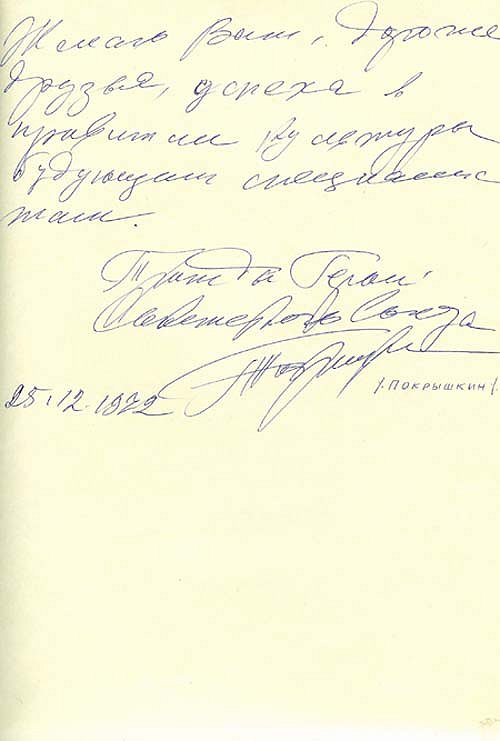 Желаю Вам, дорогие
друзья, успеха в
привитии культуры
будующим специалис
там.
Трижды Герой
Советского Союза
25.12.1972
/. ПОКРЫШКИН /.